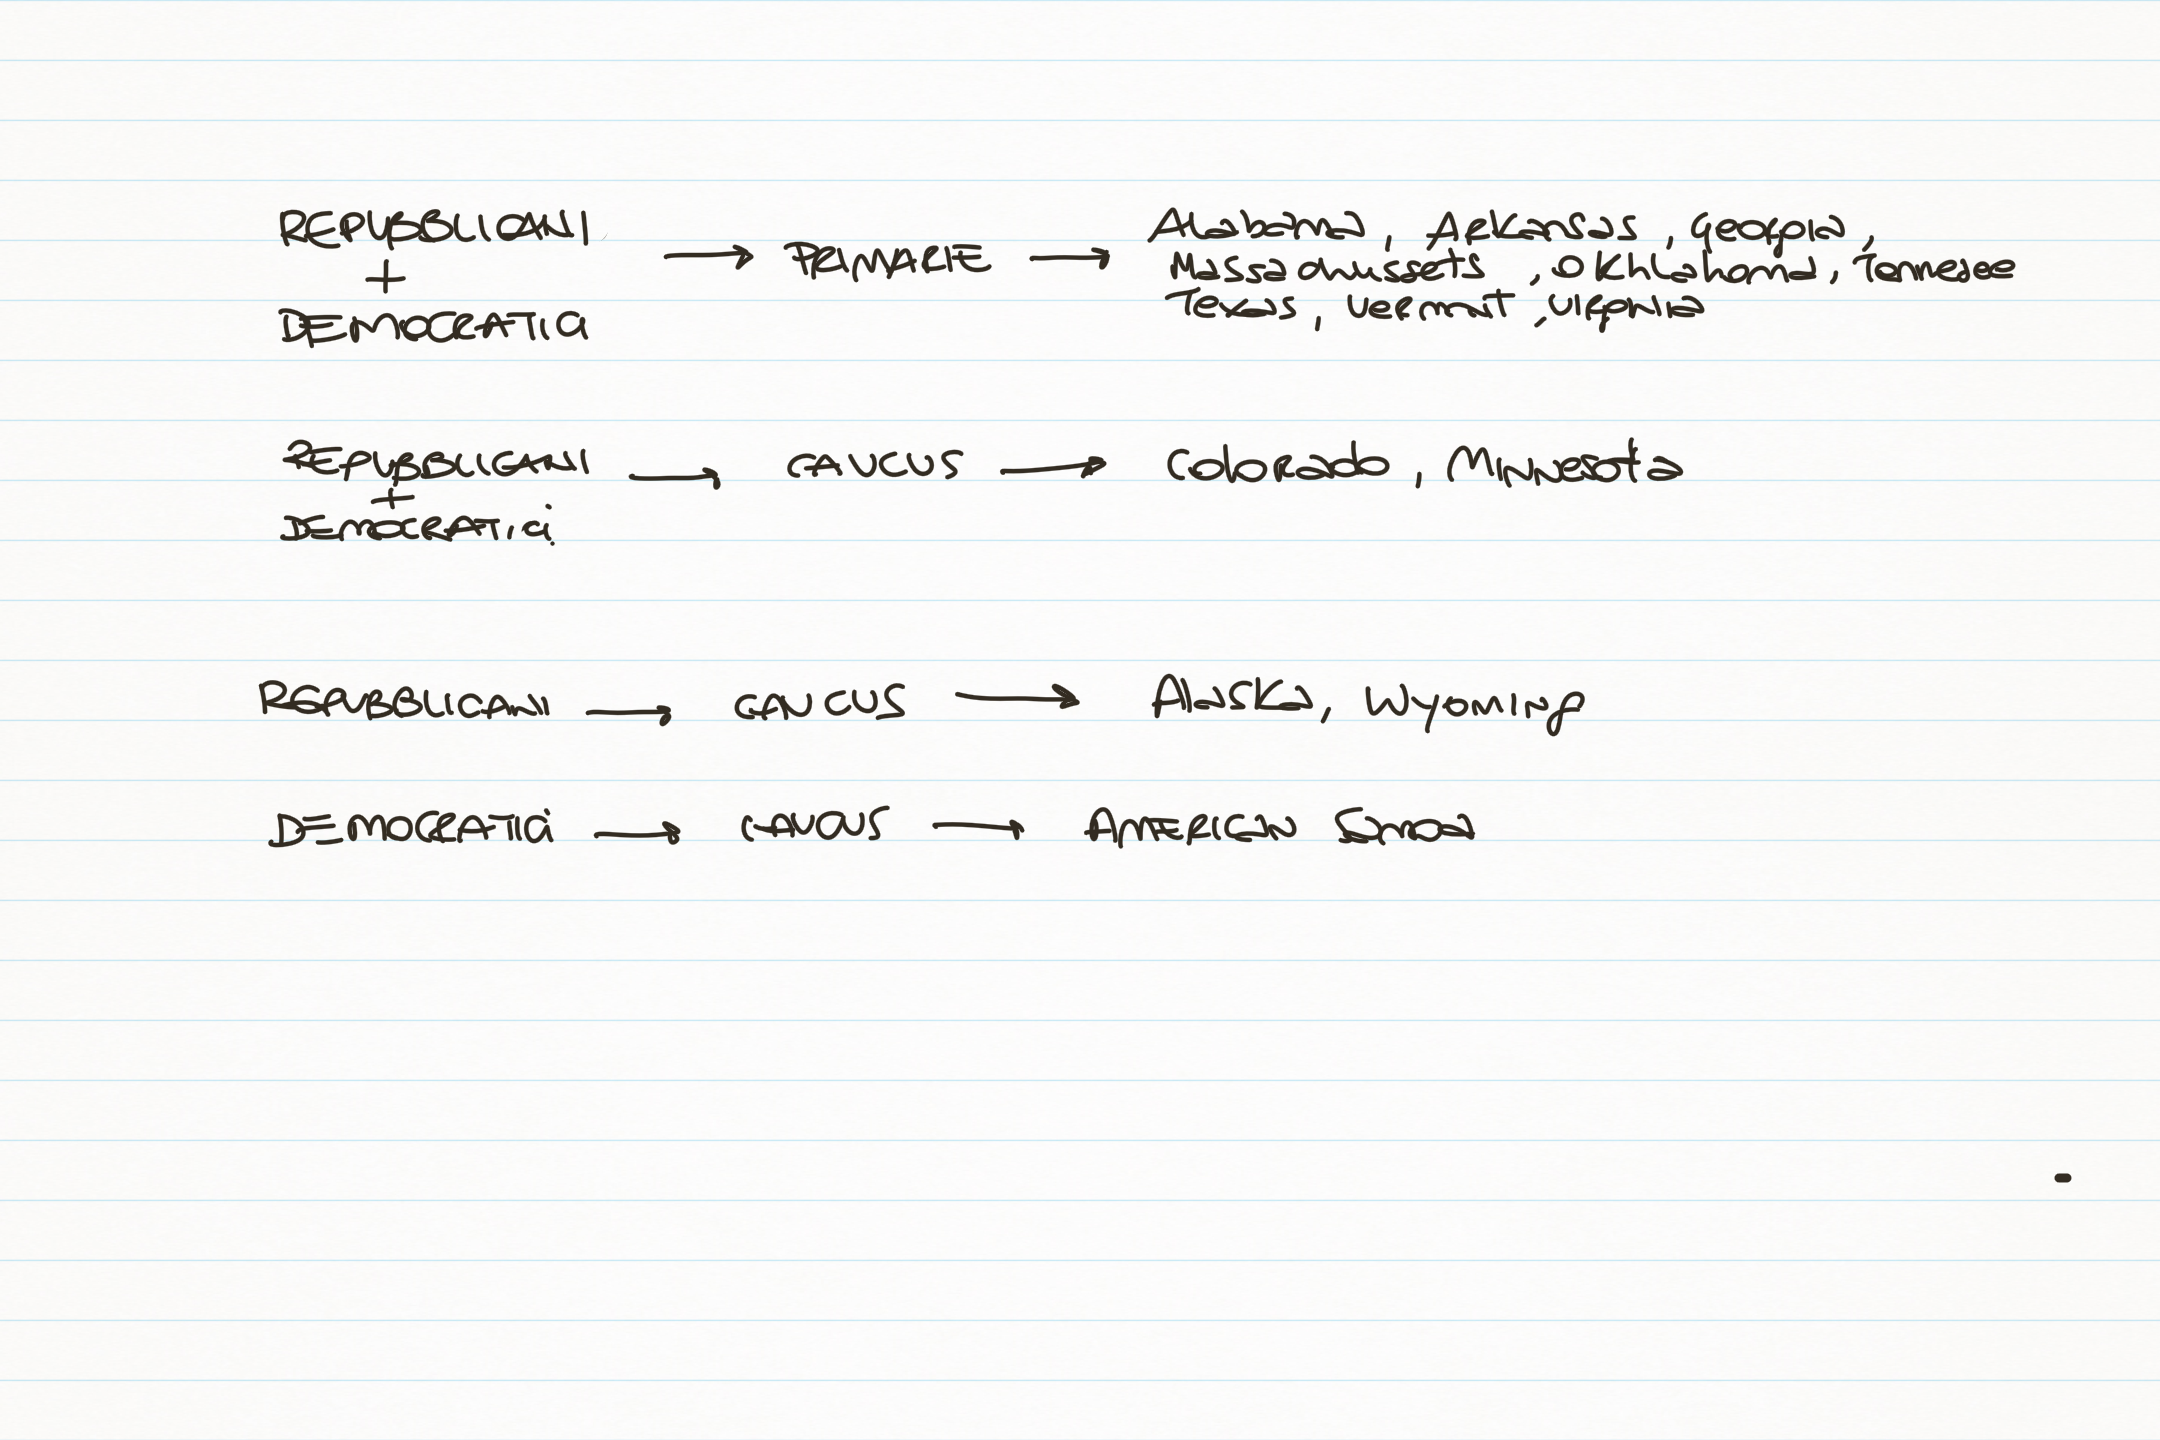 REPUBBLICANI
+
DEMOCRATICI
→ PRIMARIE →
Alabama, Arkansas, Georgia,
Massachussets, Okhlahoma, Tennesee
Texas, Vermont, Virginia
REPUBBLICANI → CAUCUS → Colorado, Minnesota
+
DEMOCRATICI
REPUBBLICANI → CAUCUS → Alaska, Wyoming
DEMOCRATICI → CAUCUS → AMERICAN Samoa